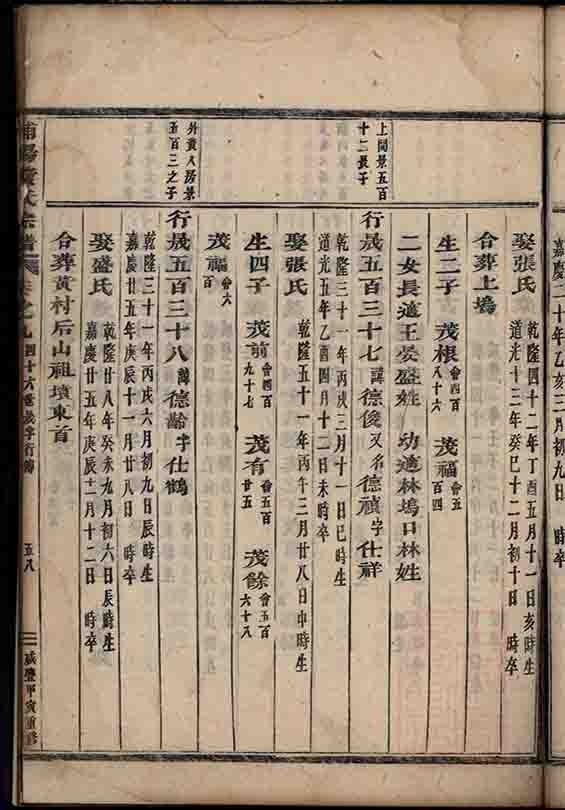 嘉慶二十年乙亥三月
時卒
娶張氏 乾隆四十二年丁酉五月十一日亥時生
道光十三年癸巳十二月初十日 時卒
合葬上塢
生二子 茂根 會四百八十六 茂福 會五百四
二女長適王愛盛姓 幼適林塢口林姓
上閒景五百
十二長子
行晟五百三十七 諱德俊又名德禎字仕祥
乾隆三十一年丙戌三月十一日巳時生
道光五年乙酉四月十二日未時卒
娶張氏 乾隆五十一年丙午三月廿八日申時生
生四子 茂前 會四百九十七 茂有 會五百廿五 茂餘 會五百六十八
茂福 會六百
外黃入房景
五百三之子
行晟五百三十八 諱德齡字仕鶴
乾隆三十一年丙戌六月初九日辰時生
嘉慶廿五年庚辰十一月廿八日 時卒
娶盛氏 乾隆廿八年癸未九月初六日辰時生
嘉慶廿五年庚辰十二月十二日 時卒
合葬黃村后山祖墳東首
氏宗譜 卷之九 四十六世晟字行傳 五八 咸豐甲寅重修